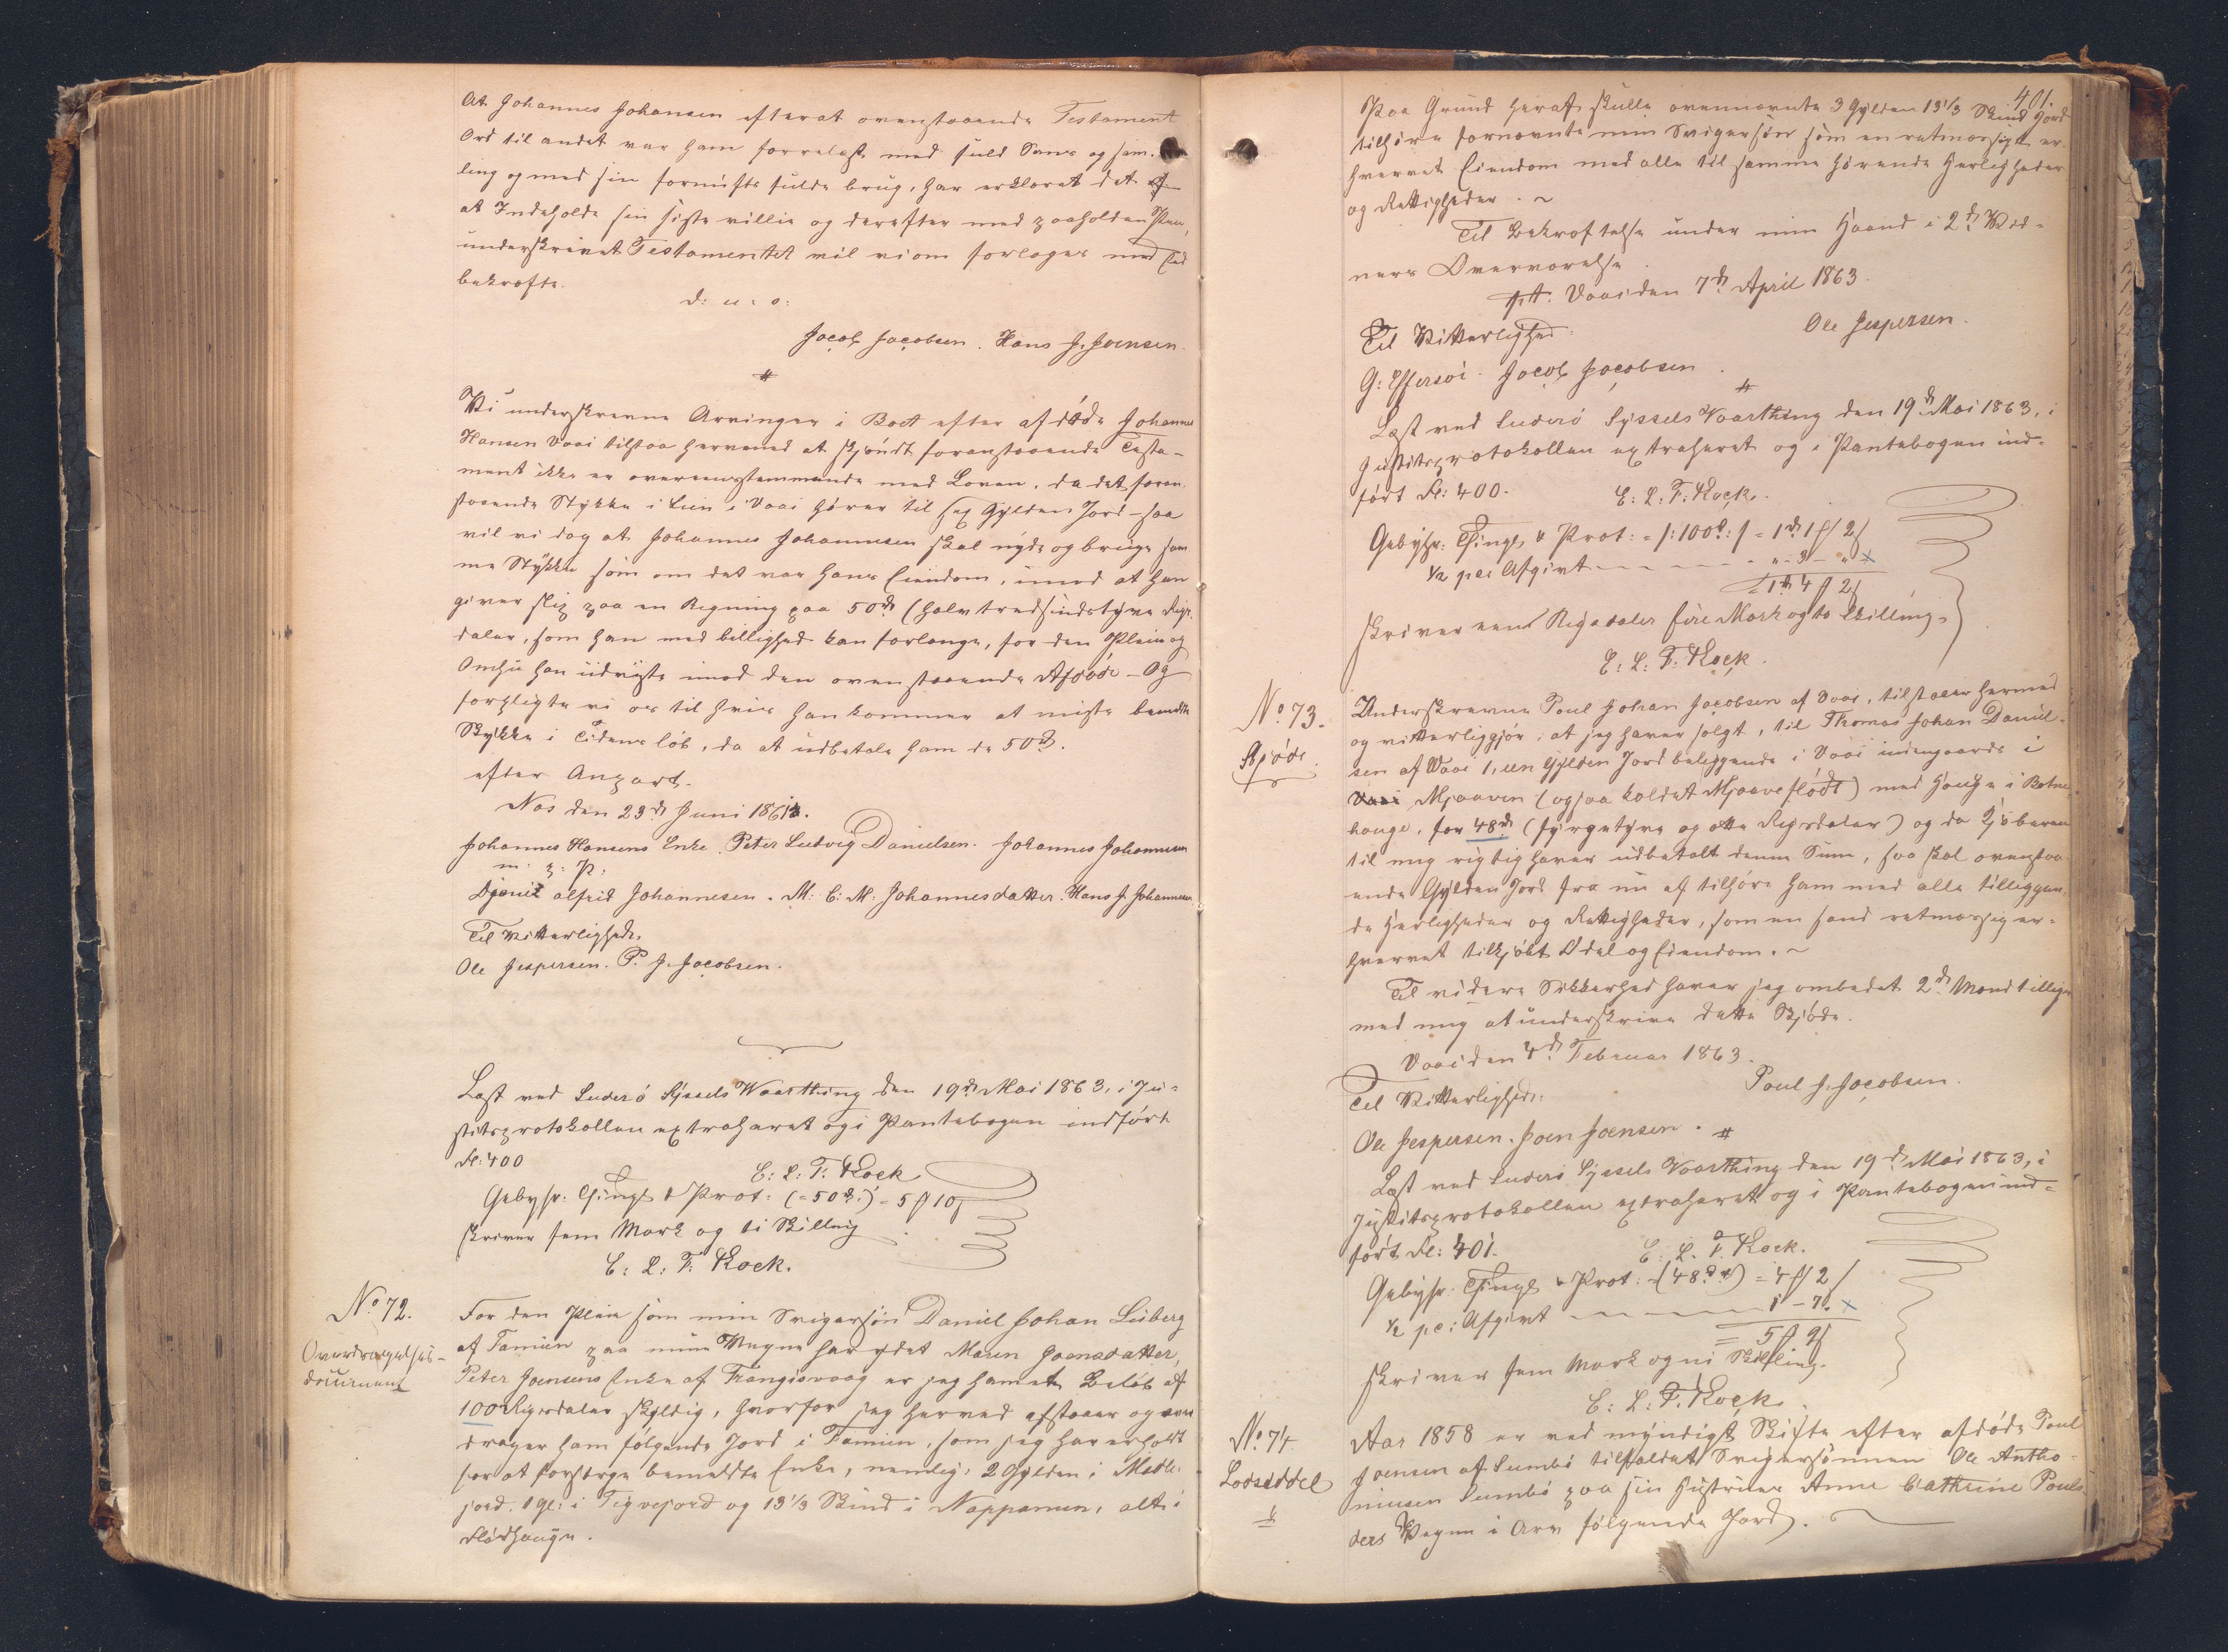 At Johannes Johansen efterat ovenstaaende Testament
Ord til andet var ham forrelæst, med fuld Sans og sam-
ling og med sin fornufts fulde brug, har erklæret det
at Indeholde sin sidste villie og derefter med paaholden Pen,
underskrevet Testamentet vil vi om forlanges med Eed
bekræfte.
d: u: s:
Jacob Jacobsen. Hans J. Joensen.
#
Vi underskrevne Arvinger i Boet efter afdøde Johannes
Hansen Vaai tilstaa herved at skjøndt foranstaaende Testa-
ment ikke er overensstemmende med Loven, da det foran-
staaende Stykke i Lien i Vaai hører til sex Gylden Jord – saa
vil vi dog at Johannes Johannesen skal nyde og bruge sam-
me Stykke som om det var hans Eiendom, imod at han
giver slip paa en Regning paa 50rd (halvtredsindstyve Rigs-
daler, som han med billighed kan forlange, for den Pleie og
Omhu han udviste imod den ovenstaaende Afdøde – Og
forpligte vi os til hvis han kommer at miste bemeldte
Stykke i Tidens løb, da at udbetale ham de 50rd.
efter Anpart.
Nes den 23d Juni 1861.
Johannes Hansens Enke. Peter Ludvig Danielsen. Johannes Johannesen
m: p: P:
Djonis alfred Johannesen. M: C: M: Johannesdatter. Hans J. Johannesen
Til Vitterlighed.
Ole Jespersen. P. J. Jacobsen.
Læst ved Suderø Syssels Vaarthing den 19d Mai 1863, i Ju-
stitsprotokollen extraheret og i Pantebogen indført
Fl: 400
C: L: F: Kock
Gebyhr: Thingl & Prot: (= 50rd:) = 5 ß 10
skriver fem Mark og ti Skilling
C: L: F: Kock.
No 72.
Overdragelses-
document
For den Pleie som min Svigersøn Daniel Johan Lisberg
af Famien paa mine Vegne har ydet Maren Joensdatter,
Peter Joensens Enke af Trangisvaag er jeg ham et Beløb af
100 Rigsdaler skyldig, hvorfor jeg herved afstaaer og over
drager ham følgende Jord i Famien, som jeg har erholdt
for at forsørge bemeldte Enke, nemlig: 2 Gylden i Medle-
jord. 1 gl: i Tigvejord og 13 1/3 Skind i Nappamen, alt i
Flødhaugen.
401.
Paa Grund heraf skulle ovennævnte 3 Gylden 13 1/3 Skind Jord
tilhøre fornævnte min Svigersøn som en retmæssigt er-
hvervet Eiendom med alle til samme hørende Herligheder
og Rettigheder. ~
Til Bekræftelse under min Haand i 2d Vid-
ners Overværelse.
p.t. Vaai den 7d April 1863.
Ole Jespersen.
Til Vitterlighed
G: Effersøe. Jacob Jacobsen.
#
Læst ved Suderø Syssels Vaarthing den 19d Mai 1863, i
Justitsprotokollen extraheret og i Pantebogen ind-
ført Fl: 400.
C: L: F: Kock.
Gebyhr: Thingl & Prot: = /: 100rd: / = 1rd 1 ß 2
1/2 pC: Afgivt - - - - - " - 3 - "
1rd 4 ß 2
skriver een Rigsdaler fire Mark og to Skilling.
C: L: F: Kock.
No. 73.
Skjøde.
Underskrevne Poul Johan Jacobsen af Vaai, tilstaaer hermed
og vitterliggjør: at jeg haver solgt, til Thomas Johan Daniel-
sen af Vaai 1, een Gylden Jord beliggende i Vaai indengaards i
Vaai Mjaaven (ogsaa kaldet Mjaaveflødt) med Hauge i Botne
hauge, for 48rd (fyrgetyve og otte Rigsdaler) og da Kjøberen
til mig rigtig haver udbetalt denne Sum, saa skal ovenstaa-
ende Gylden Jord fra nu af tilhøre ham med alle tilliggen-
de Herligheder og Rettigheder, som en sand retmæssig er-
hvervet tilkjøbt Odel og Eiendom. ~
Til videre Sikkerhed haver jeg ombedet 2d Mænd tillige
med mig at underskrive dette Skjøde.
Vaai den 4d Februar 1863.
Poul J. Jacobsen.
Til Vitterlighed:
Ole Jespersen. Joen Joensen. #
Læst ved Suderø Syssels Vaarthing den 19d Mai 1863, i
Justitsprotokollen extraheret og i Pantebogen ind-
ført Fl: 401.
C: L: F. Kock.
Gebyhr: Thingl & Prot: (48rd) = 4 ß 2
1/2 pC: Afgivt - - - 1 - 7
= 5 ß 9
skriver fem Mark og ni Skilling.
C: L: F. Kock.
No 74
Lodseddel
Aar 1858 er ved myndigt Skifte efter afdøde Poul
Joensen af Sumbø tilfaldet Svigersønnen Ole Antho-
niusen Sumbø paa sin Hustrues Anne Cathrine Pouls-
ders Vegne i Arv følgende Jord.